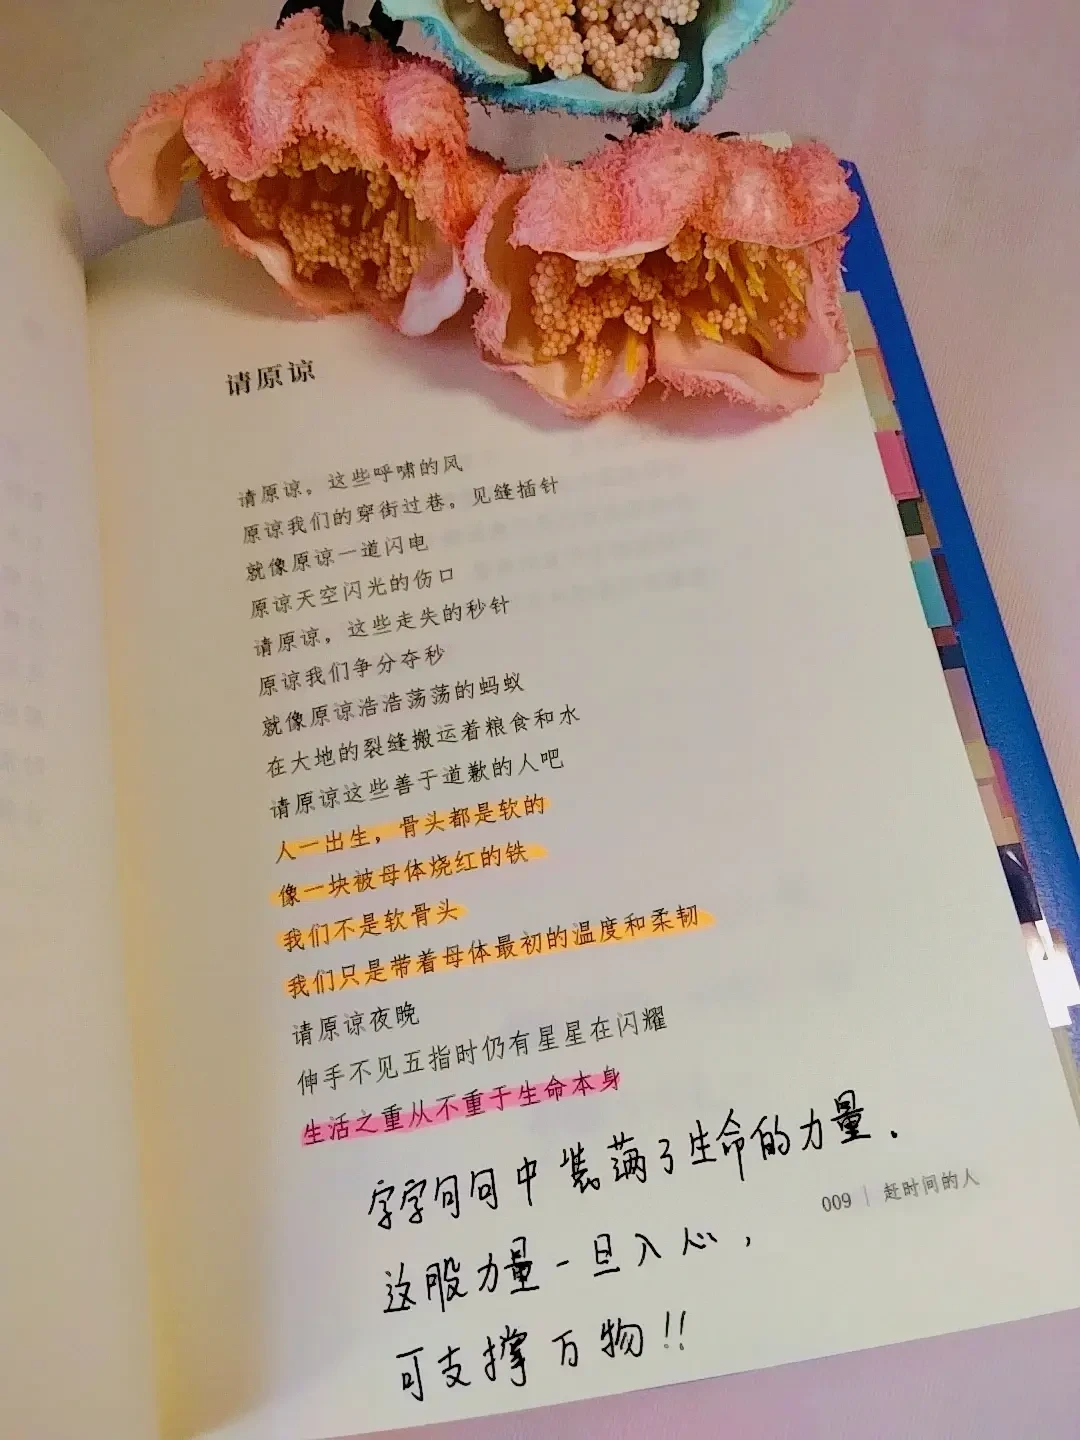 请原谅
请原谅，这些呼啸的风
原谅我们的穿街过巷，见缝插针
就像原谅一道闪电
原谅天空闪光的伤口
请原谅，这些走失的秒针
原谅我们争分夺秒
就像原谅浩浩荡荡的蚂蚁
在大地的裂缝搬运着粮食和水
请原谅这些善于道歉的人吧
人一出生，骨头都是软的
像一块被母体烧红的铁
我们不是软骨头
我们只是带着母体最初的温度和柔韧
请原谅夜晚
伸手不见五指时仍有星星在闪耀
生活之重从不重于生命本身
字字句句中装满了生命的力量.
009 | 赶时间的人
这股力量一旦入心,
可支撑万物!!